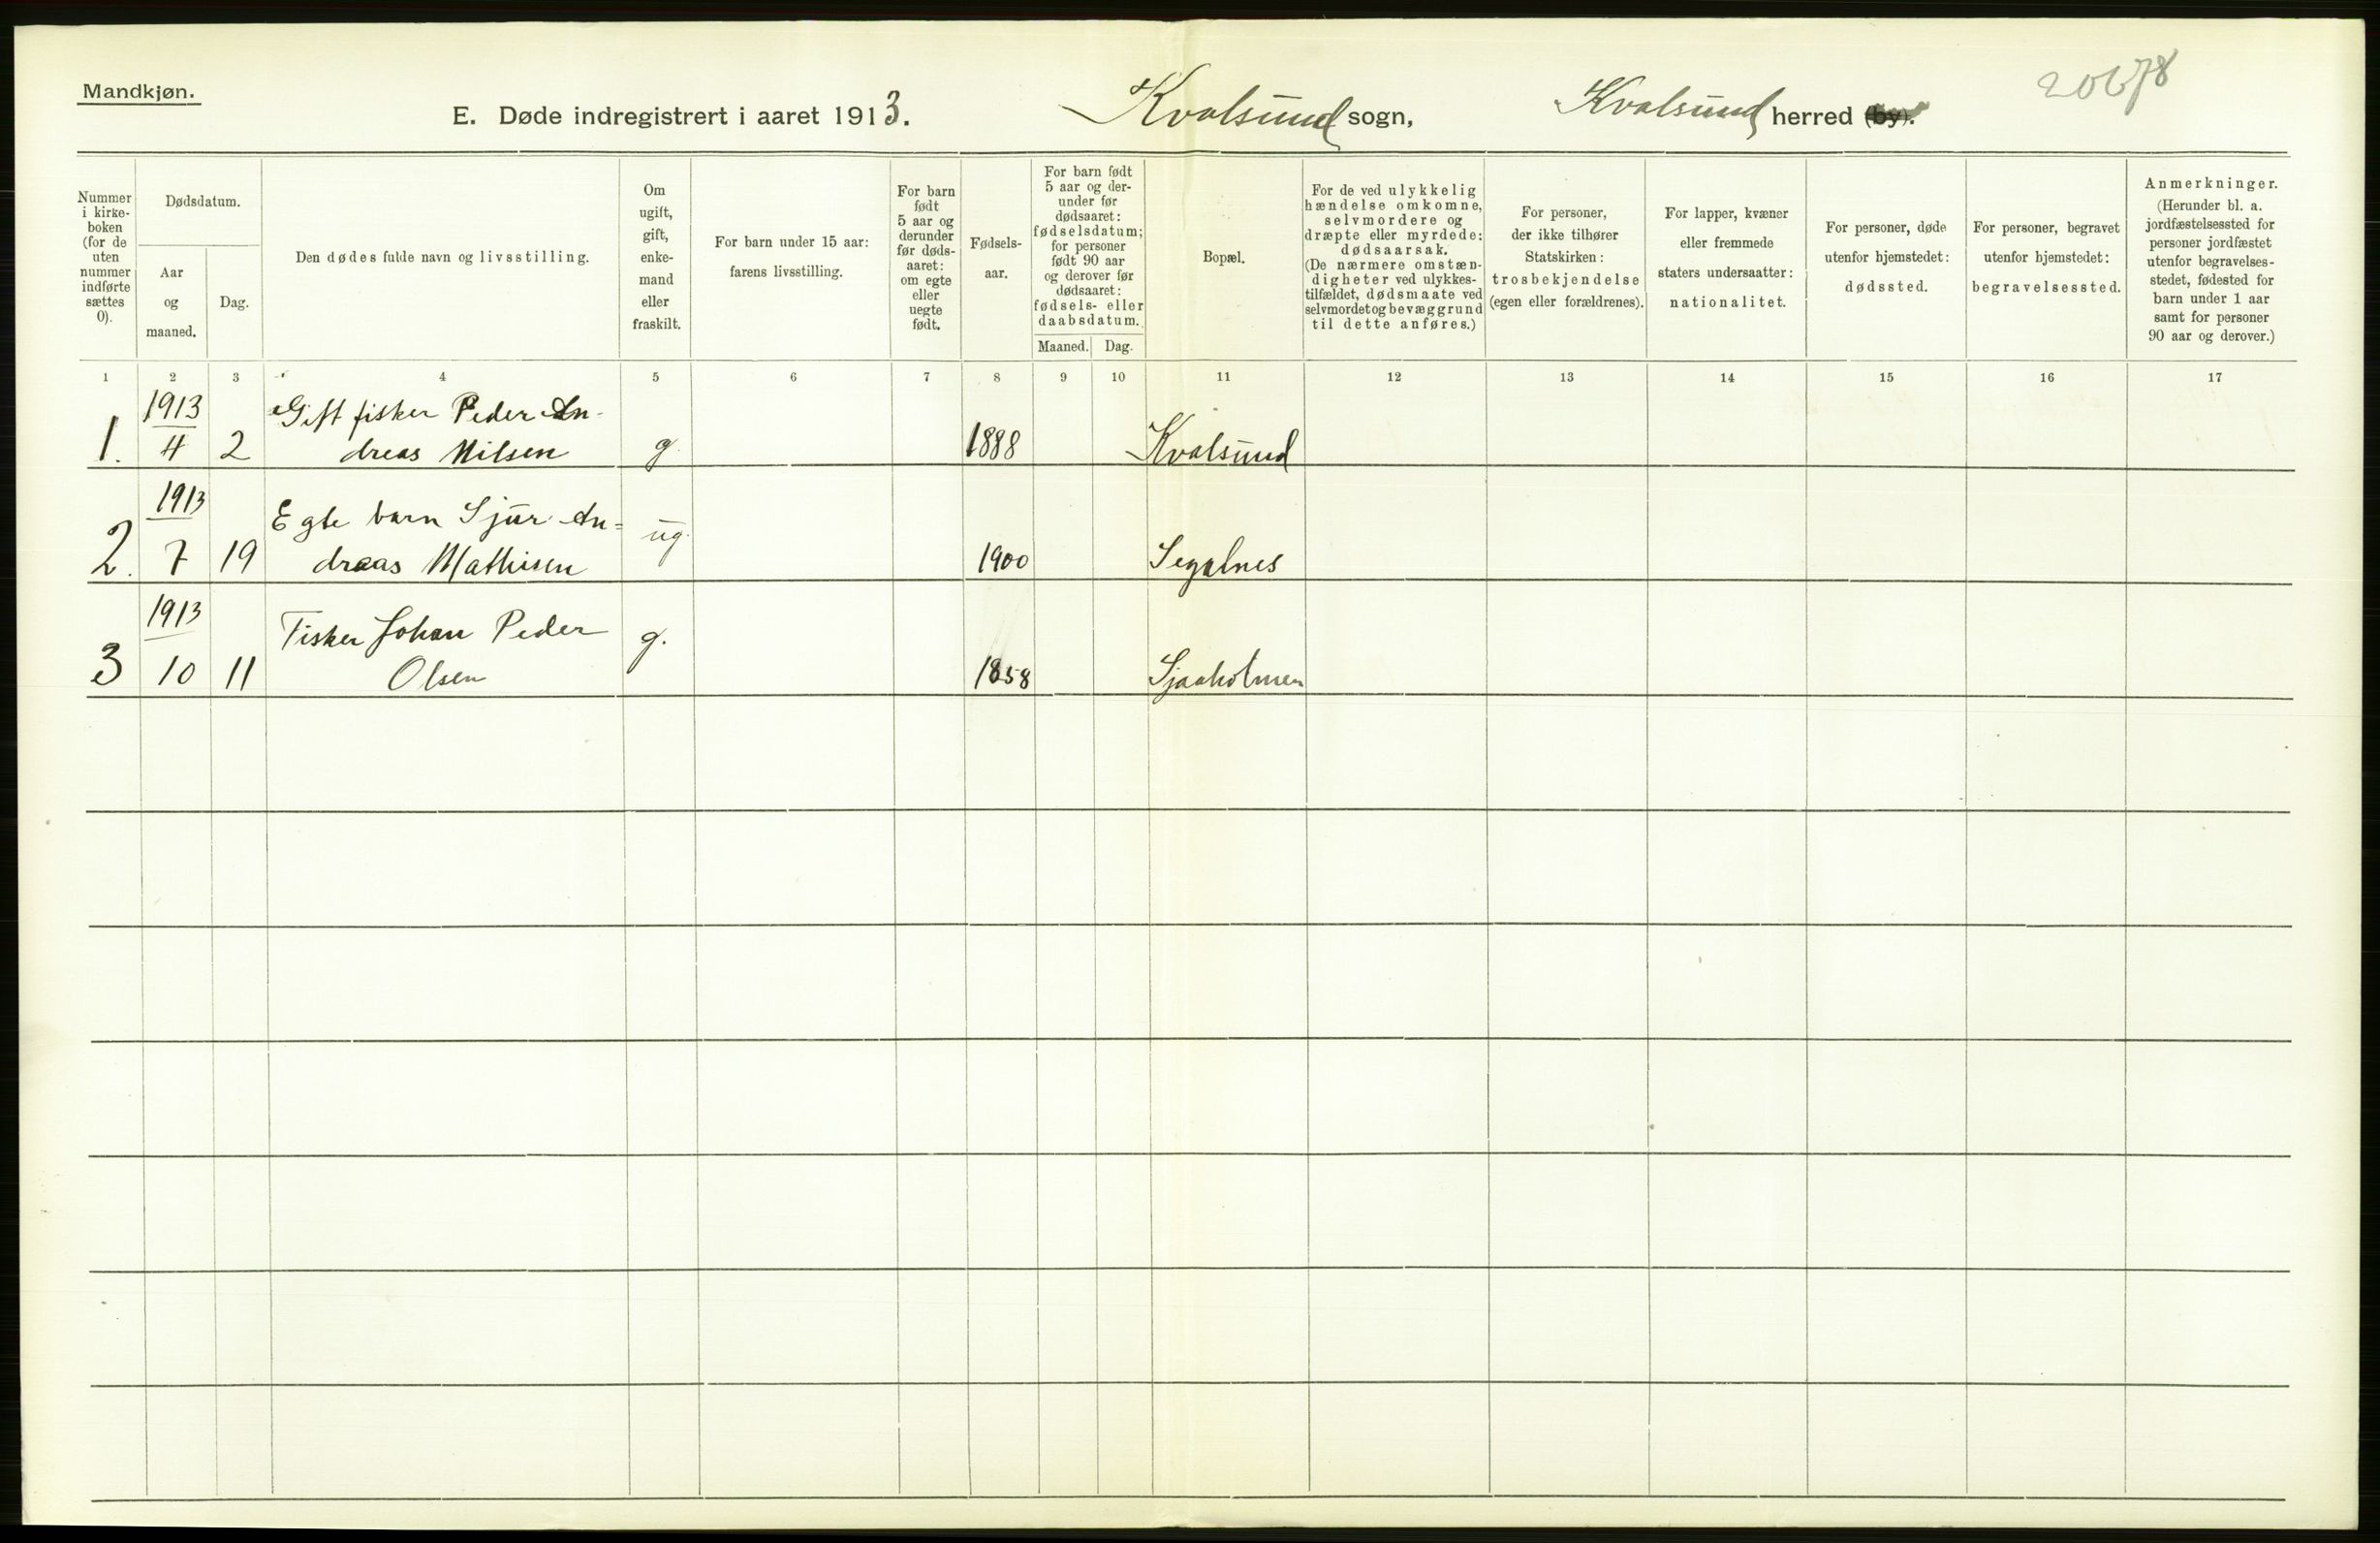 Mandkjøn.
20678
E. Døde indregistrert i aaret 1913. Kvalsund sogn, Kvalsund herred (by).
Nummer
i kirke-
boken
(for de
uten
nummer
indførte
sættes
0).
Dødsdatum.
Aar
og
maaned.
Dag.
Den dødes fulde navn og livsstilling.
Om
ugift,
gift,
enke-
mand
eller
fraskilt.
For barn under 15 aar:
farens livsstilling.
For barn
født
5 aar og
derunder
før døds-
aaret:
om egte
eller
uegte
født.
Fødsels-
aar.
For barn født
5 aar og der-
under før
dødsaaret:
fødselsdatum;
for personer
født 90 aar
og derover før
dødsaaret:
fødsels- eller
daabsdatum.
Maaned. Dag.
Bopæl.
For de ved ulykkelig
hændelse omkomne,
selvmordere og
dræpte eller myrdede:
dødsaarsak.
(De nærmere omstæn-
digheter ved ulykkes-
tilfældet, dødsmaate ved
selvmordet og bevæggrund
til dette anføres.)
For personer,
der ikke tilhører
Statskirken:
trosbekjendelse
(egen eller forældrenes).
For lapper, kvæner
eller fremmede
staters undersaatter:
nationalitet.
For personer, døde
utenfor hjemstedet:
dødssted.
For personer, begravet
utenfor hjemstedet:
begravelsessted.
Anmerkninger.
(Herunder bl. a.
jordfæstelsessted for
personer jordfæstet
utenfor begravelses-
stedet, fødested for
barn under 1 aar
samt for personer
90 aar og derover.)
1 2 3 4 5 6 7 8 9 10 11 12 13 14 15 16 17
1913 Gift fisker Peder An-
1. 4 2 dreas Nilsen g 1888 Kvalsund
1913 Egte barn Sjur An=
2. 7 19 dreas Mathisen ug. 1900 Segelnes
1913 Fisker Johan Peder
3 10 11 Olsen g. 1858 Sjaaholmen